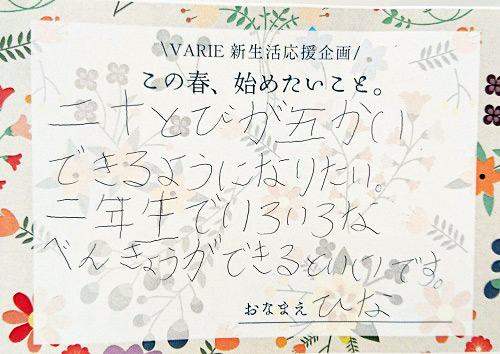 \VARIE 新生活応援企画/
この春、始めたいこと。
二十とびが五かい
できるようになりたい。
二年生でいろいろな
べんきょうができるといいです。
おなまえ ひな